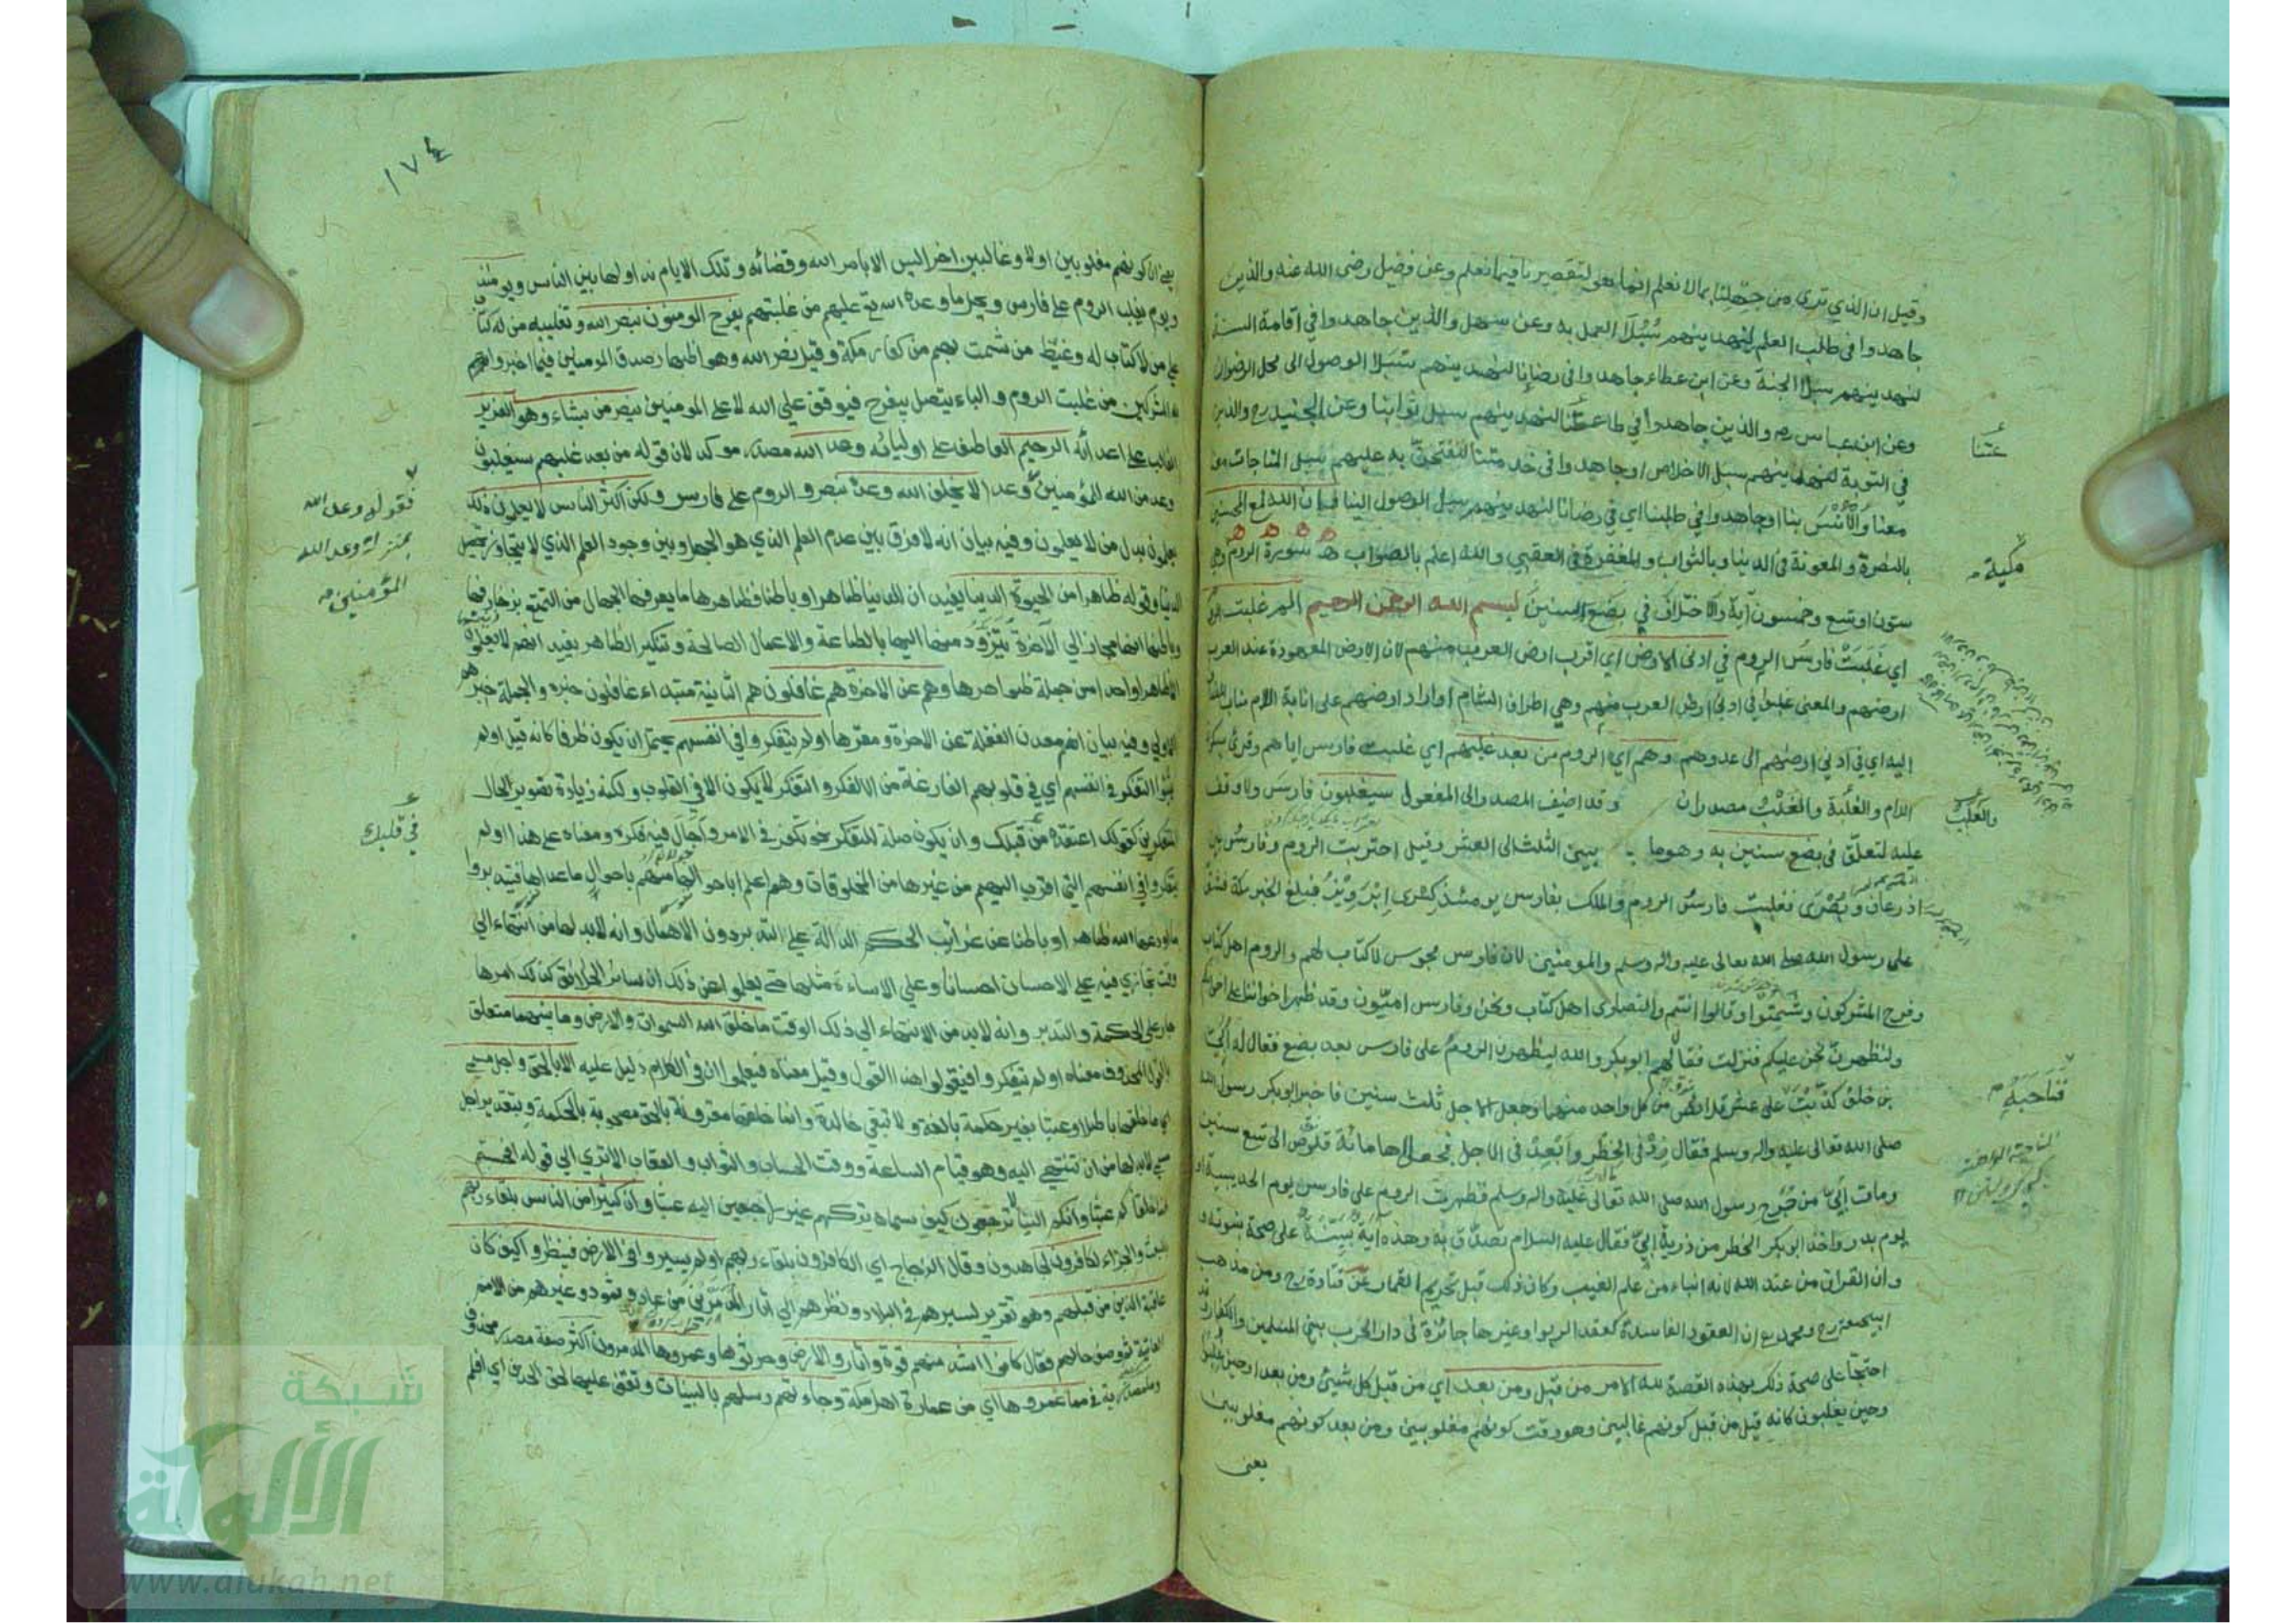 وقيل ان الذي نرى من جهلنا بما لا نعلم انما هو لتقصيرنا فيما نعلم وعن فضيل رضى الله عنه والذين
جاهدوا في طلب العلم لنهدينهم سُبُلَ العمل به وعن سهل والذين جاهدوا في اقامة السنة
لنهدينهم سبل الجنة وعن ابن عطاء جاهدوا في رضانا لنهدينهم سُبُلَ الوصول الى محل الرضوان
وعن ابن عباس رض والذين جاهدوا في طاعتنا لنهدينهم سبل ثوابنا وعن الجنيد رح والذين
في التوبة لنهدينهم سبل الاخلاص او جاهدوا في خدمتنا لنفتحن عليهم سبل المناجات
معنا وَالاُنْسَ بنا او جاهدوا في طلبنا اي في رضانا لنهدينهم سبل الوصول الينا وان الله لمع المحسنين
بالنصرة والمعونة في الدنيا وبالثواب والمغفرة في العقبي والله اعلم بالصواب سورة الروم
ستون او تسع وخمسون آية والاختلاف في بضع سنين بسم الله الرحمن الرحيم الم غلبت الروم
اي غَلَبَتْ فارسُ الروم في ادنى الارض اي اقرب ارض العرب منهم لان الارض المعهودة عند العرب
ارضهم والمعنى غلبوا في ادنى ارض العرب منهم وهي اطراف الشام او اراد ارضهم على انابة اللام مناب المضاف
اليه اي في ادنى ارضهم الى عدوهم وهم اي الروم من بعد غلبهم اي غلبت فارس اياهم وقرئ بسكون
اللام والغلبة والغلْبُ مصدران وقد اضيف المصدر الى المفعول سيغلبون فارسَ ولا وقف
عليه لتعلق في بضع سنين به وهو ما بين الثلث الى العشر وقيل احتربت الروم وفارسُ بين
اذرعات وبُصْرَى فغلبت فارسُ الروم والملك بفارس يومئذ كسرى ابرويز فبلغ الخبر مكة فشق
على رسول الله صلى الله تعالى عليه واله وسلم والمومنين لان فارس مجوس لا كتاب لهم والروم اهل كتاب
وفرح المشركون وشمتوا وقالوا انتم والنصارى اهل كتاب ونحن وفارس اميّون وقد ظهر اخواننا على اخوانكم
ولنظهرنّ نحن عليكم فنزلت فقال لهم ابو بكر والله ليظهرن الرومُ على فارس بعد بضع فقال له اُبَيّ
بن خلف كذبت على عشر قلائص من كل واحد منهما وجعل الاجل ثلث سنين فاخبر ابو بكر رسول الله
صلى الله تعالى عليه واله وسلم فقال زِدْ في الخطر وَاَبْعِدْ في الاجل فجعلاها مائة قلوص الى تسع سنين
ومات اُبَيّ من جُرْح رسول الله صلى الله تعالى عليه واله وسلم فظهرت الروم على فارس يوم الحديبية او
يوم بدر واخذ ابو بكر الخطر من ذرية اُبَيّ فقال عليه السلام تصدّق به وهذه آية بيّنة على صحة نبوته و
وان القران من عند الله لانه انباء من علم الغيب وكان ذلك قبل تحريم القمار عن قتادة رح ومن مذهب
ابيحنيفة رح ومحمد رح ان العقود الفاسدة كعقد الربوا وغيرها جائزة في دار الحرب بين المسلمين والكفار وقد
احتجّا على صحة ذلك بهذه القصة لله الامر من قبل ومن بعد اي من قبل كل شيئ ومن بعد او حين غلبوا
وحين يغلبون كانه قيل من قبل كونهم غالبين وهو وقت كونهم مغلوبين ومن بعد كونهم مغلوبين
يعنى
مكية
والغلَبْ
فناحبه
١٧٤
يعني ان كونهم مغلوبين اولا وغالبين اخرا ليس الا بامر الله وقضائه وتلك الايام نداولها بين الناس ويومئذ
ويوم يغلب الروم على فارس ويحل ما وعده الله تع عليهم من غلبتهم يفرح المومنون بنصر الله وتغليبه من له كتاب
على من لا كتاب له وغيّظ من شمت بهم من كفار مكة وقيل نصر الله وهو اظهار صدق المومنين فيما اخبروا به
المشركين من غلبت الروم والباء يتصل بيفرح فيوقف على الله لا على المومنين ينصر من يشاء وهو العزيز
الغالب على اعدائه الرحيم العاطف على اوليائه وعد الله مصدر موكد لان قوله من بعد غلبهم سيغلبون
وعد من الله للمؤمنين وعدا لا يخلف الله وعده بنصر الروم على فارس ولكن اكثر الناس لا يعلمون ذلك
يعلمون بدل من لا يعلمون وفيه بيان انه لا فرق بين عدم العلم الذي هو الجهل وبين وجود العلم الذي لا يتجاوز تحصيل
الدنيا وقوله ظاهرا من الحيوة الدنيا يفيد ان للدنيا ظاهرا وباطنا فظاهرها ما يعرفها الجهال من التمتع بزخارفها
وباطنها انها مجاز الي الآخرة يتزوّد منها اليها بالطاعة والاعمال الصالحة وتنكير الظاهر يفيد انهم لا يعلمون
الا ظاهرا واحدا من جملة ظواهرها وهم عن الاخرة هم غافلون هم الثانية مبتداء غافلون خبره والجملة خبر هم
الاولي وفيه بيان انهم معدن الغفلة عن الاخرة ومقرها اولم يتفكروا في انفسهم يحتمل ان يكون ظرفا كانه قيل اولم
يثبوا التفكر في انفسهم اي في قلوبهم الفارغة من الفكر والتفكر لا يكون الا في القلوب ولكنه زيادة تصوير لحال
المتفكرين كقولك اعتقده في قلبك وان يكون صلة للتفكر نحو تفكر في الامر واجال فيه فكره ومعناه على هذا اولم
يتفكروا في انفسهم التي اقرب اليهم من غيرها من المخلوقات وهم اعلم باحوالها منهم باحوال ما عداها فتدبروا
ما اودعها الله ظاهرا وباطنا عن غرائب الحكم الدالة على التدبير دون الاهمال وانه لابد لها من انتهاء الي
وقت تجازي فيه على الاحسان احسانا وعلي الاساءة مثلها حتى يعلموا عند ذلك ان سائر الخلائق كذلك امرها
جار على الحكمة والتدبير وانه لابد من الانتهاء الي ذلك الوقت ما خلق الله السموات والارض وما بينهما متعلق
بالقول المحذوف معناه اولم يتفكروا فيقولوا هذا القول وقيل معناه فيعلموا لان في الكلام دليل عليه الا بالحق واجل مسمى
اي ما خلقها باطلا وعبثا بغير حكمة بالغة ولا لتبقى خالدة وانما خلقها مقرونة بالحق مصحوبة بالحكمة وبتقدير اجل
مسمى لابد لها من ان تنتهي اليه وهو قيام الساعة ووقت الحساب والثواب والعقاب الا ترى الي قوله افحسبتم
انما خلقناكم عبثا وانكم الينا لا ترجعون كيف سماه تركهم غير راجعين اليه عبثا وان كثيرا من الناس بلقاء ربهم
بالبعث والجزاء لكافرون لجاحدون وقال الزجاج اي لكافرون بلقاء ربهم اولم يسيروا في الارض فينظروا كيف كان
عاقبة الذين من قبلهم وهو تقرير لسيرهم في البلاد ونظرهم الي آثار المدمّرين من عاد وثمود وغيرهم من الامم
العاتية ثم وصف حالهم فقال كانوا اشد منهم قوة واثاروا الارض وحرثوها وعمروها المدمرون اكثر صفة مصدر محذوف
وما مصدرية مما عمروها اي من عمارة اهل مكة وجاءتهم رسلهم بالبينات وتقف عليها لحق الحذف اي فلم
فقوله وعد الله
بمنزلة وعد الله
المؤمنين
في قلبك
شبكة
الألوكة
www.alukah.net